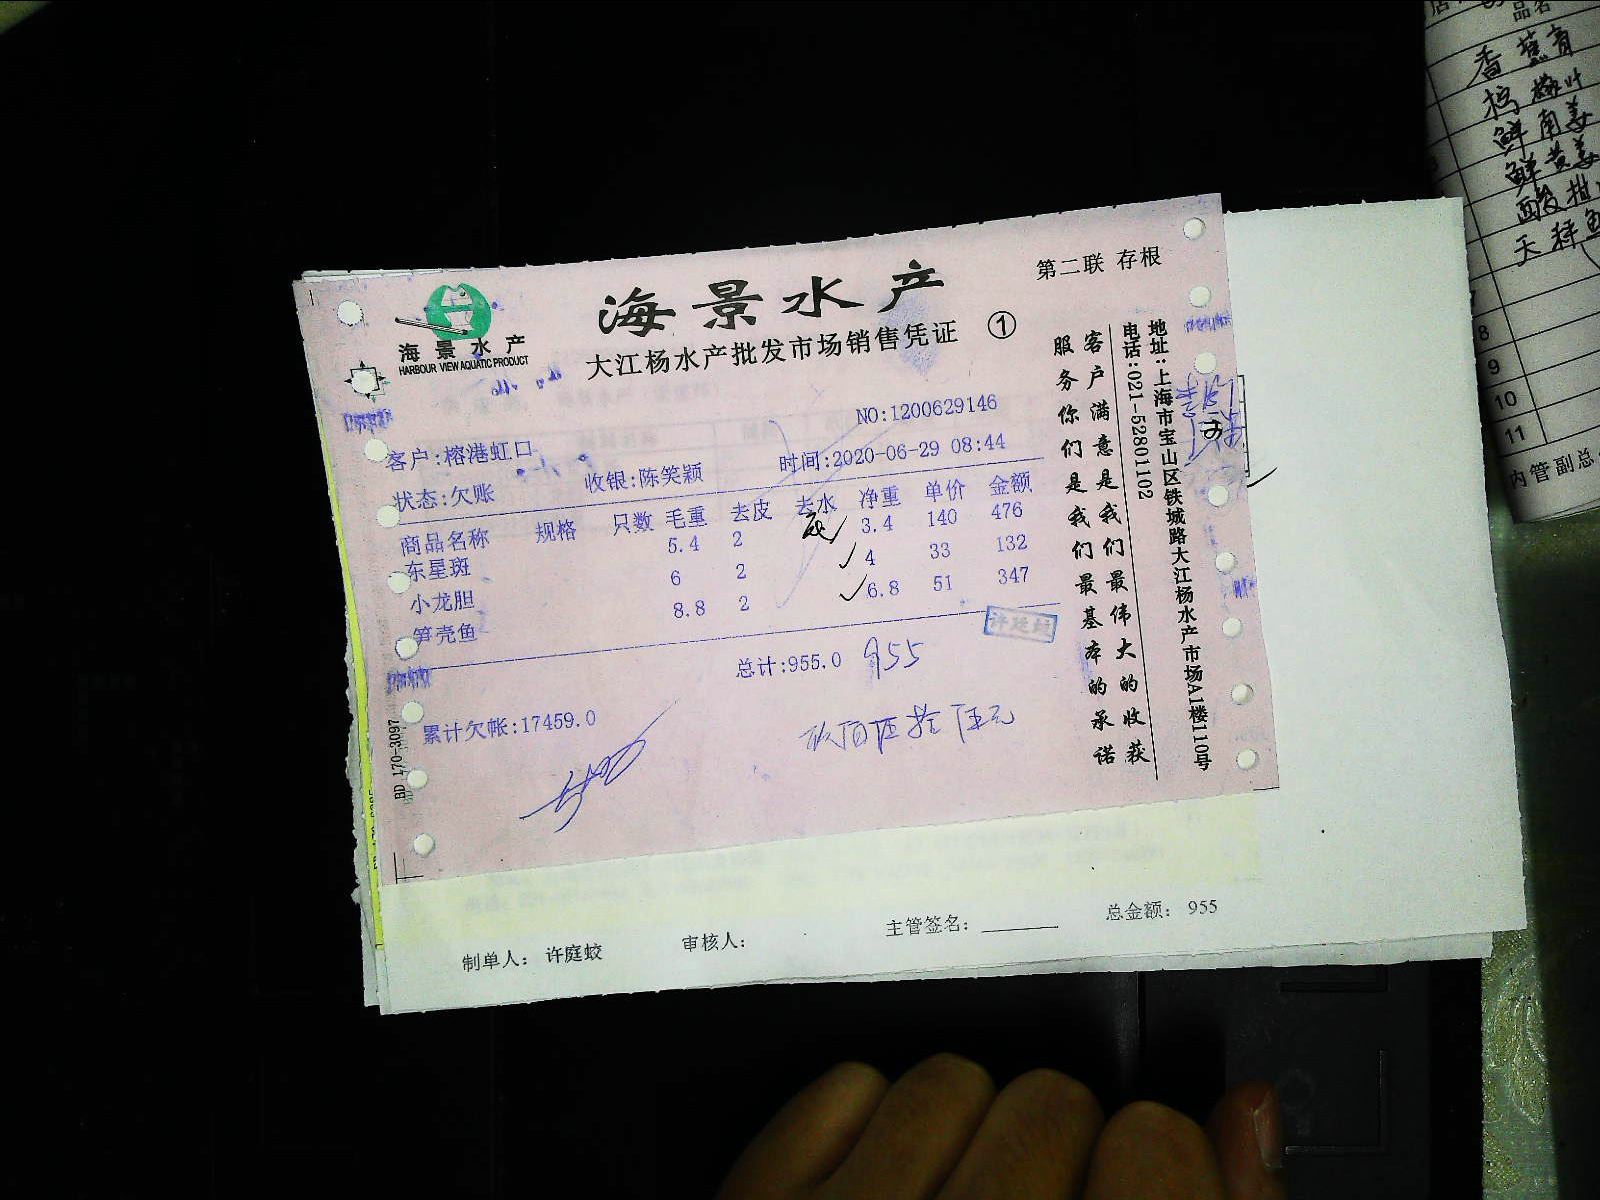 第二联 存根
海景水产
海景水产
HARBOUR VIEW AQUATIC PRODUCT
大江杨水产批发市场销售凭证 ①
NO:1200629146
客户:榕港虹口
时间:2020-06-29 08:44
状态:欠账 收银:陈笑颖
商品名称 规格 只数 毛重 去皮 去水 净重 单价 金额
东星斑 5.4 2 3.4 140 476
小龙胆 6 2 4 33 132
笋壳鱼 8.8 2 6.8 51 347
总计:955.0 955
累计欠帐:17459.0
许廷蛟
BD 170-3097
客户满意是我们最伟大的收获
服务你们是我们最基本的承诺
地址:上海市宝山区铁城路大江杨水产市场A1楼110号
电话:021-52801102
制单人: 许庭蛟 审核人: 主管签名: 总金额: 955
品名
香蕉
柠檬叶
鲜南姜
鲜黄姜
酸柑
天秤鱼
8
9
10
11
内管副总